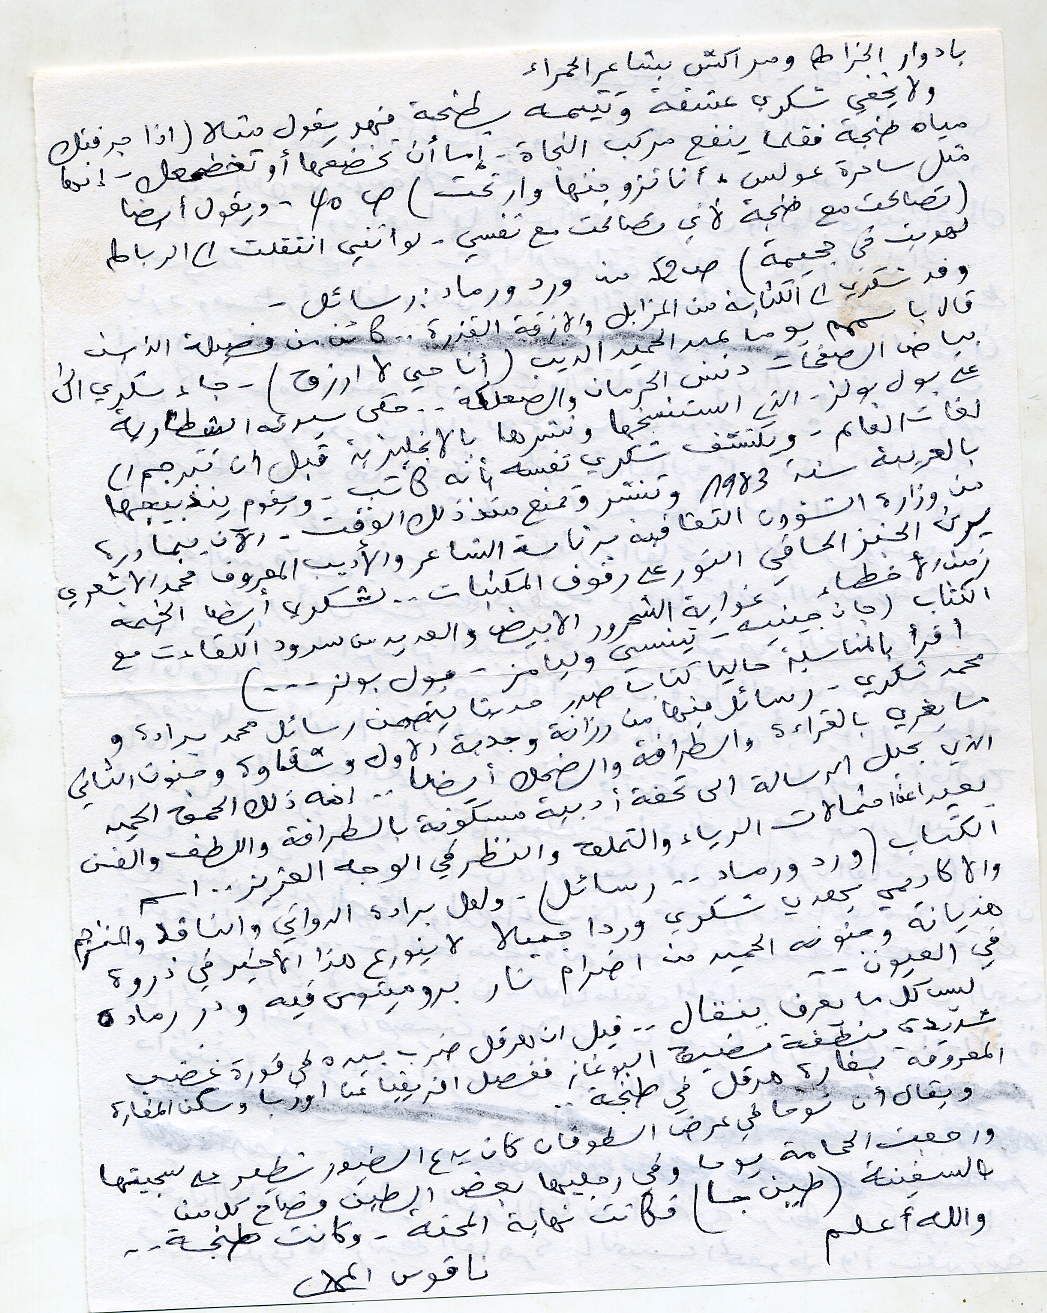 بادوار الخراط ومراكش بشاعر الحمراء
ولا يخفي شكري عشقه وتتيمه بطنجة فهو يقول مثلا (اذا جرفتك
مياه طنجة فقلما ينفع مركب النجاة - إما أن تخضعها أو تخضعك - إنها
مثل ساحرة عوليس، أنا تزوجتها وارتحت) ص 45 - ويقول أيضا
(تصالحت مع طنجة لأني تصالحت مع نفسي - لو أنني انتقلت الى الرباط
لهويت في جحيمة) ص 52 من ورد ورماد: رسائل -
وفد شكري الى الكتابة من المزابل والأزقة القذرة .. كائن من فصيلة الذين
قال باسمهم يوما عبد الحميد الديب (أنا حي لا ارزق) - جاء شكري الى
بياض الصفحات - دنس الحرمان والصعلكة .. حكى سيرته الشطارية
على بول بولز - الذي استنسخها ونشرها بالانجليزية قبل ان تترجم الى
لغات العالم - ويكتشف شكري نفسه بأنه كاتب - ويقوم بتذبيجها
بالعربية سنة 1983 وتنشر وتمنع منذ ذلك الوقت - الآن بمبادرة
من وزارة الشؤون الثقافية برئاسة الشاعر والأديب المعروف محمد الاشعري
يرى الخبز الحافي النور على رفوف المكتبات .. لشكري أيضا الخيمة
زمن الأخطاء غواية الشحرور الابيض والعديد من سرود اللقاءات مع
الكتاب (جان جينيه - تينيسي وليامز - بول بولز ...)
أقرأ بالمناسبة حاليا كتاب صدر حديثا يتضمن رسائل محمد برادة و
محمد شكري - رسائل فيها من رزانة وجدية الأول وشقاوة وجنون الثاني
ما يغري بالقراءة والطرافة والضحك أيضا .. انه ذلك الحمق الجميل
الذي يحيل الرسالة الى تحفة أدبية مسكونة بالطرافة واللطف والفن
بعيدا عن احتمالات الرياء والتملق والنظر في الوجه العزيز .. اسم
الكتاب (ورد ورماد .. رسائل) - ولعل برادة الروائي والناقد والمترجم
والاكاديمي يهدي شكري وردا جميلا لا يتورع هذا الاخير في ذروة
هذيانه وجنونه الحميد من اضرام نار بروميتوس فيه وذر رماده
في العيون ..
ليس كل ما يعرف يقال .. قيل ان هرقل ضرب بيده في فورة غضب
شديدة منطقة مضيق البوغاز ففصل افريقيا عن أوربا وسكن المغارة
المعروفة بمغارة هرقل في طنجة ..
ويقال أن نوحا في عرض الطوفان كان يدع الطيور تطير على سجيتها
ورجعت الحمامة يوما وفي رجليها بعض الطين فصاح كل من
بالسفينة (طين جا) فكانت نهاية المحنة - وكانت طنجة ..
والله أعلم